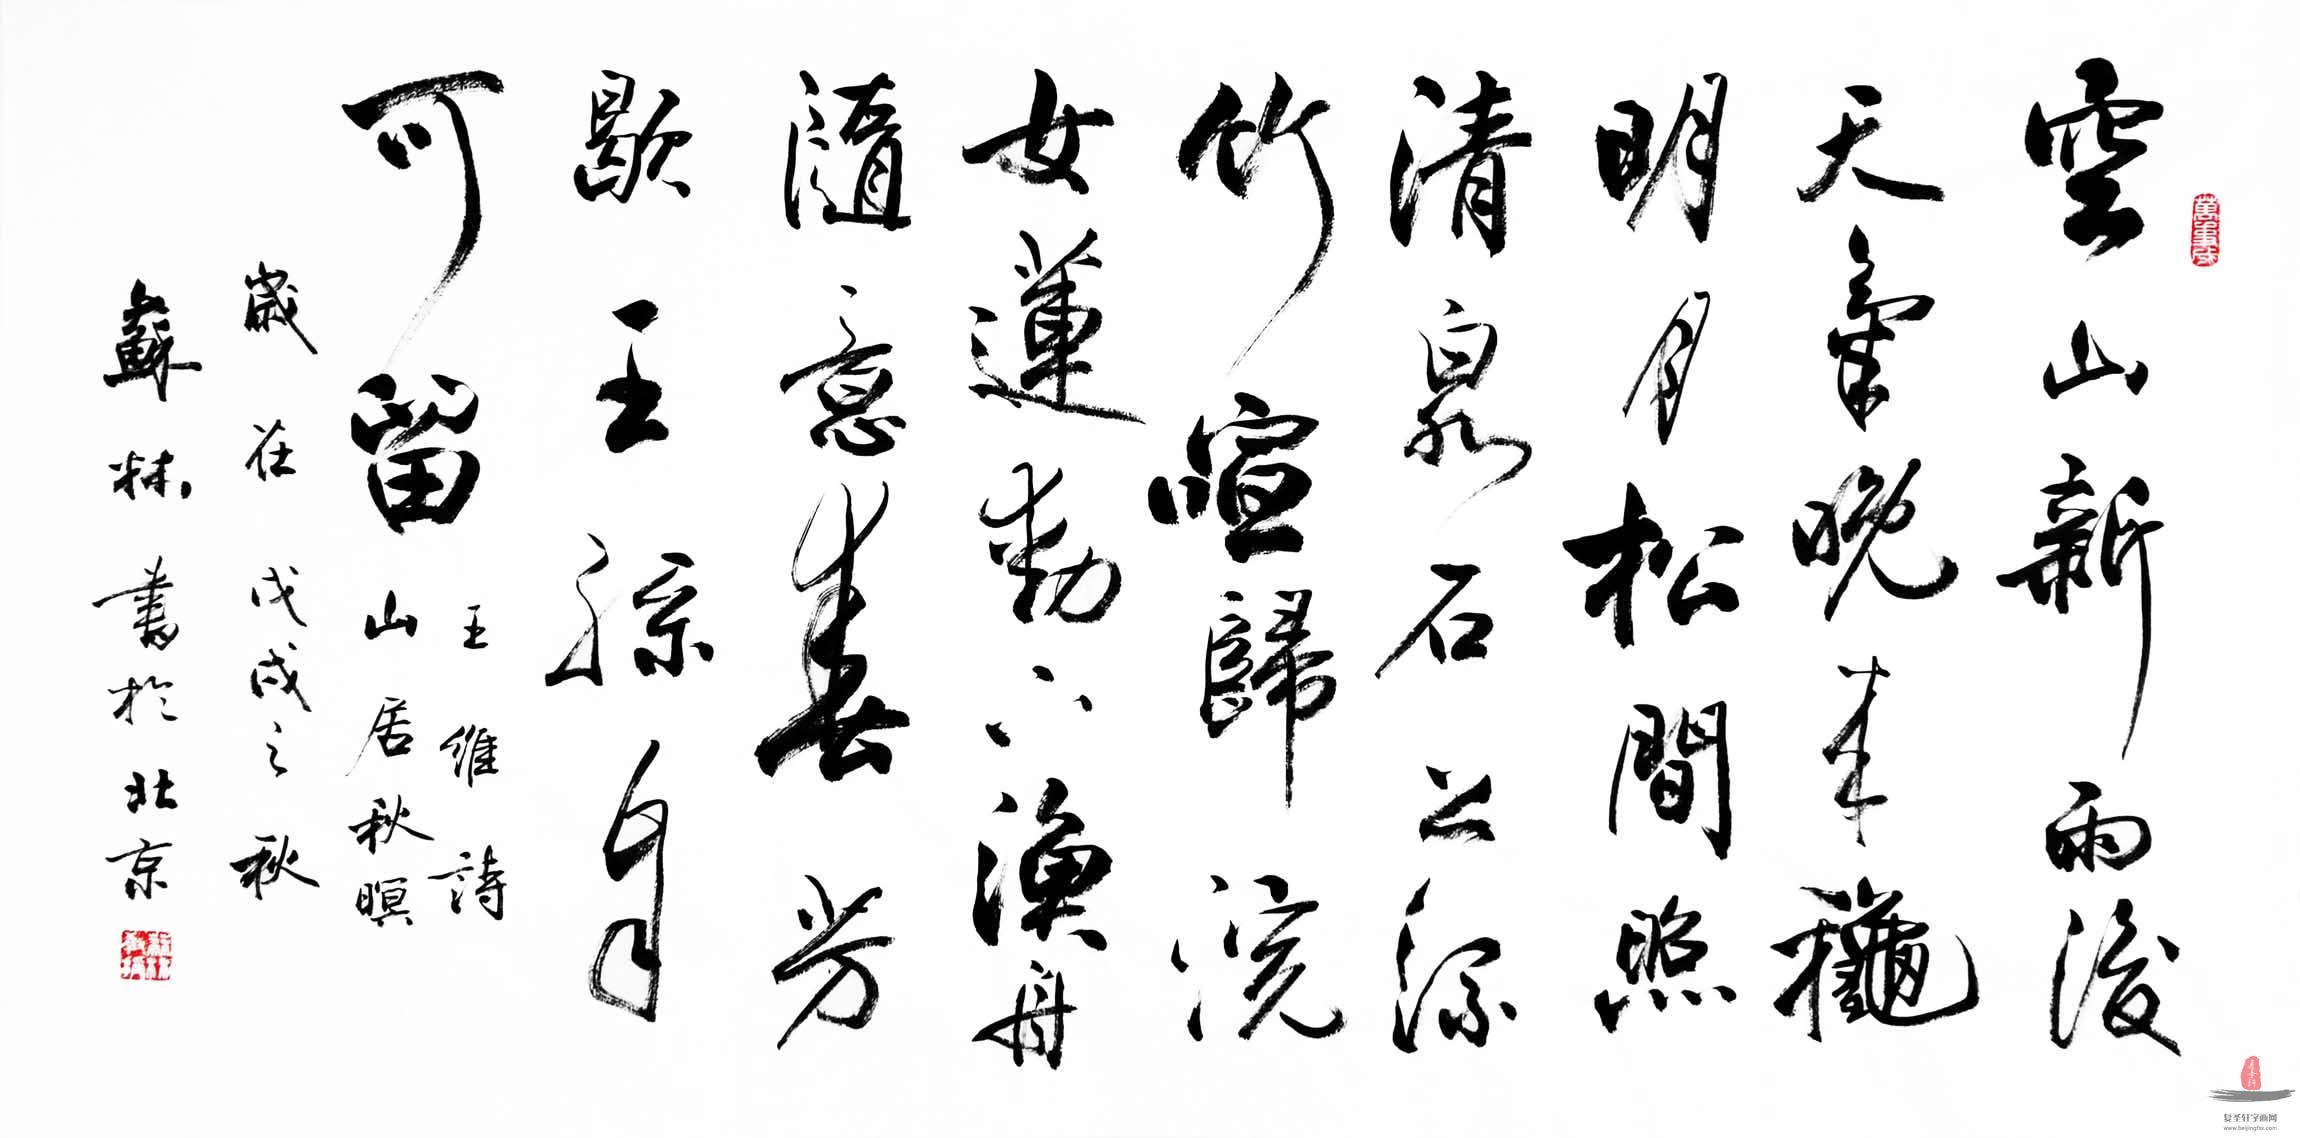 萬事成
空山新雨後
天氣晚来龝
明月松間照
清泉石上流
竹喧歸浣
女蓮動下漁舟
隨意春芳
歇王孫自
可留
王維詩
山居秋暝
歲在戊戌之秋
蘇林書於北京
复圣轩字画网
www.beijingfsx.com